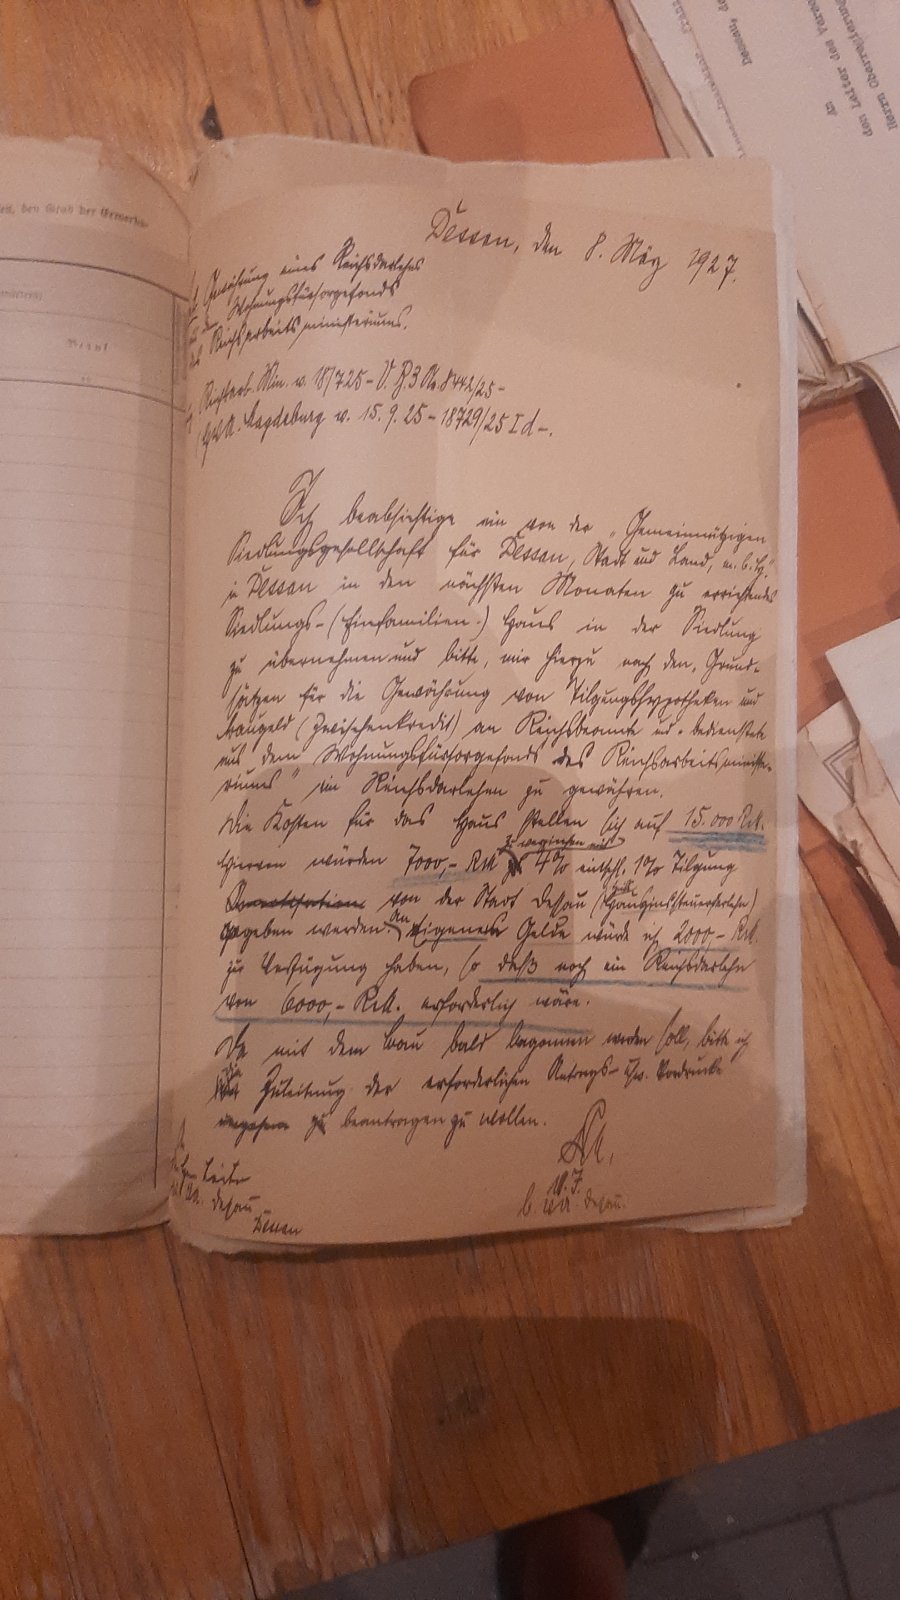 Dessau, den 8. März 1927.
Gewährung eines Reichsdarlehns
Wohnungsfürsorgefonds
des Reichsarbeitsministeriums.
Reichsarb. Min. v. 18/7 25 - V. B. 3 No. 8442/25 -
Magdeburg v. 15. 9. 25 - 18729/25 I d -.
Ich beabsichtige ein von der "Gemeinnützigen
Siedlungsgesellschaft für Dessau, Stadt und Land, m. b. H."
in Dessau in den nächsten Monaten zu errichtendes
Siedlungs-(Einfamilien-) Haus in der Siedlung
zu übernehmen und bitte, mir hierzu nach den "Grund-
sätzen für die Gewährung von Tilgungshypotheken und
Baugeld (Zwischenkredit) an Reichsbeamte u. -bedienstete
aus dem Wohnungsfürsorgefonds des Reichsarbeitsministe-
riums" ein Reichsdarlehen zu gewähren.
Die Kosten für das Haus stellen sich auf 15.000 RM.
Hiervon würden 7000,- RM zu 4% einschl. 1% Tilgung
von der Stadt Dessau (Hauszinssteuerdarlehn)
gegeben werden. An Eigenem Gelde würde ich 2000,- RM.
zur Verfügung haben, so daß noch ein Reichsdarlehn
von 6000,- RM. erforderlich wäre.
Da mit dem Bau bald begonnen werden soll, bitte ich
die Zuleitung der erforderlichen Antrags- usw. Vordrucke
beantragen zu wollen.
Leiter
Dessau
Dessau
b. Dessau.
Herrn Oberregierung
den Leiter des Verso
An
Dessau, de
den Grad der Erwerbs-
Beruf